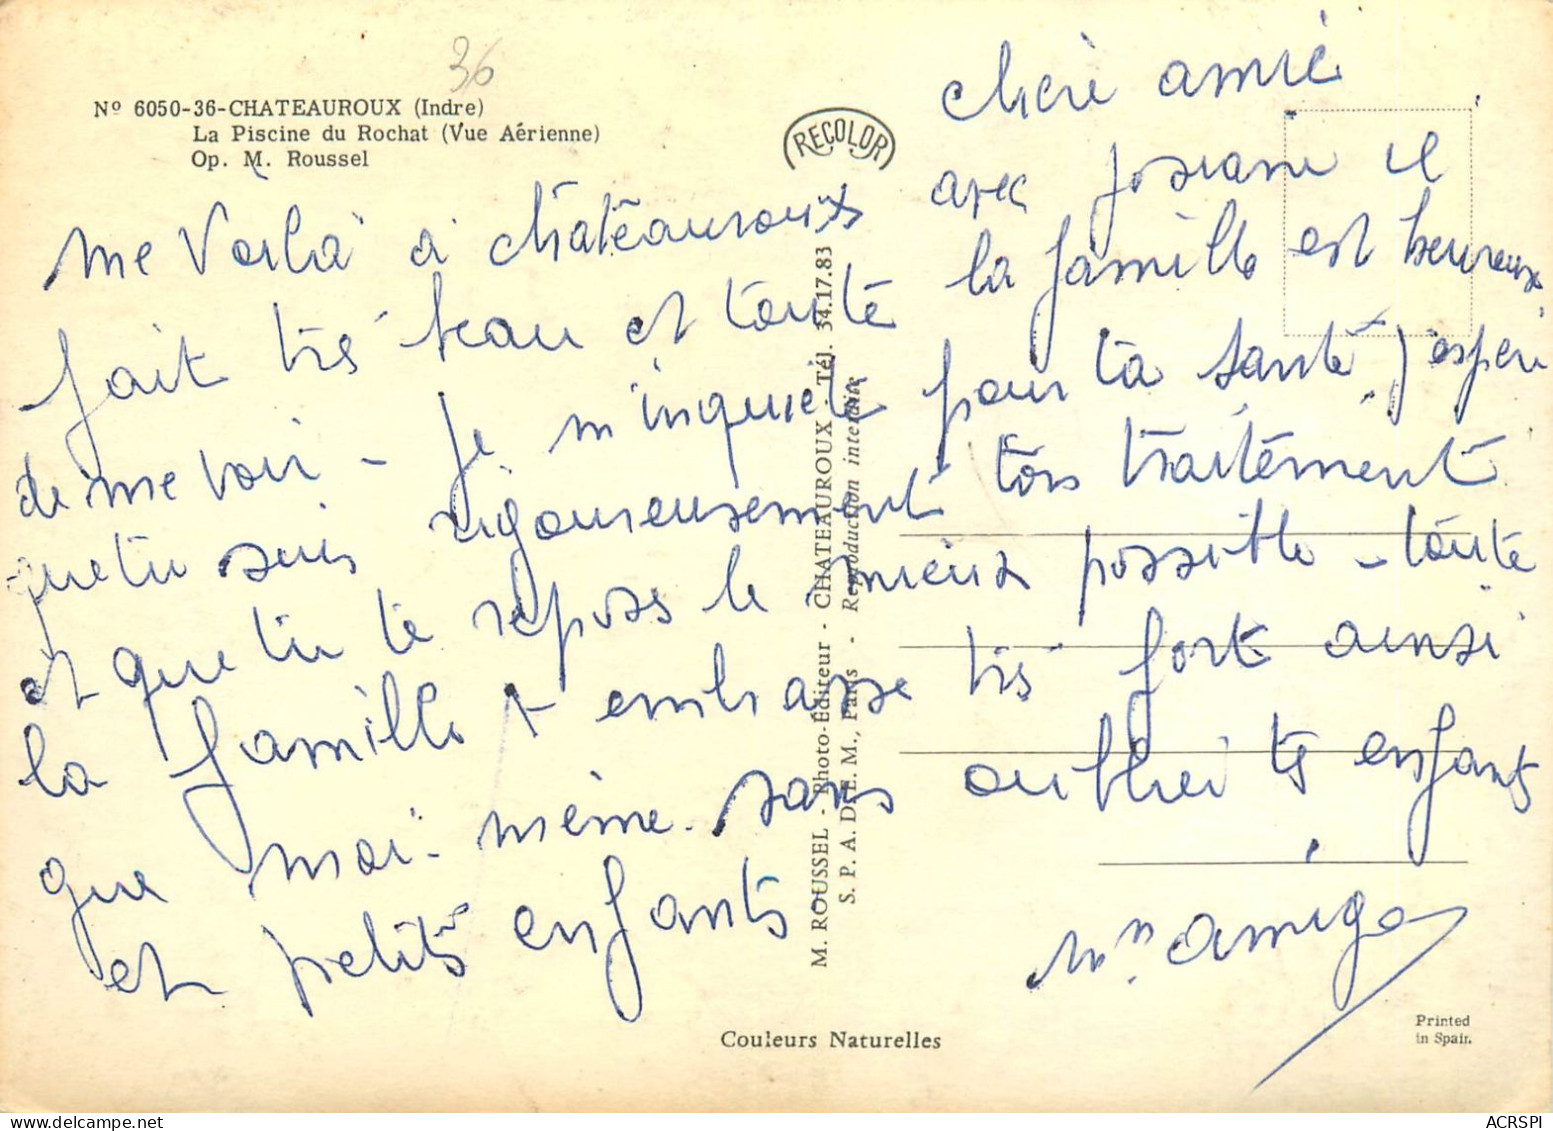 36
Nº 6050-36-CHATEAUROUX (Indre)
La Piscine du Rochat (Vue Aérienne)
Op. M. Roussel
RECOLOR
chère amie
me voilà à châteauroux avec Josiane il
fait très beau et toute la famille est heureuse
de me voir - je m'inquiète pour ta santé, j'espère
que tu suis rigoureusement ton traitement
et que tu te repose le mieux possible - toute
la famille t'embrasse très fort ainsi
que moi-même. sans oublier tes enfants
et petits enfants
amiga
M. ROUSSEL - Photo-Éditeur - CHATEAUROUX - Tél. 34.17.83
S. P. A. D. E. M., Paris - Reproduction interdite
Couleurs Naturelles
Printed
in Spain.
ACRSPI